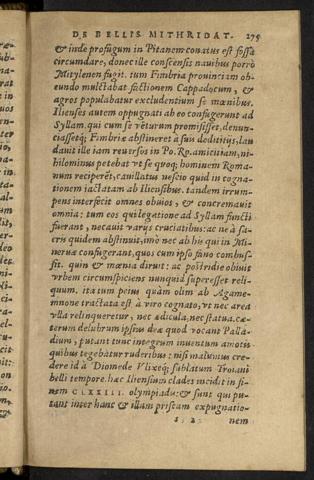 DE BELLIS MITHRIDAT. 275
& inde profugum in Pitanem conatus est fossa
circundare, donec ille conscensis nauibus porrò
Mitylenen fugit. tum Fimbria prouinciam ob-
eundo mulctabat factionem Cappadocum, &
agros populabatur excludentium se mœnibus.
Ilienses autem oppugnati ab eo confugerunt ad
Syllam. qui cum se vēturum promisisset, denun-
ciassetq; Fimbriæ abstineret à suis deditijs, lau
dauit ille iam reuersos in Po. Ro. amicitiam, ni-
hilominus petebat vt se quoq; hominem Roma-
num reciperēt, cauillatus nescio quid in cogna-
tionem iactatam ab Iliensibus. tandem irrum-
pens interfecit omnes obuios, & concremauit
omnia: tum eos qui legatione ad Syllam functi
fuerant, necauit varijs cruciatibus: ac ne à sa-
cris quidem abstinuit, imò nec ab his qui in Mi-
neruæ confugerant, quos cum ipso fano combus-
sit. quin & mœnia diruit: ac postridie obiuit
vrbem circumspiciens nunquid superesset reli-
quum. ita tum peius quàm olim ab Agame-
mnone tractata est à viro cognato, vt nec area
vlla relinqueretur, nec ædicula, nec statua. cæ-
terum delubrum ipsius deæ quod vocant Palla-
dium, putant tunc integrum inuentum amotis
quibus tegebātur ruderibus: nisi malumus cre-
dere id à Diomede Vlixeq; sublatum Troiani
belli tempore. hæc Iliensium clades incidit in fi-
nem CLXXIII. olympiadu: & sunt qui pu-
tant inter hanc & illam priscam expugnatio-
s. 2. nem